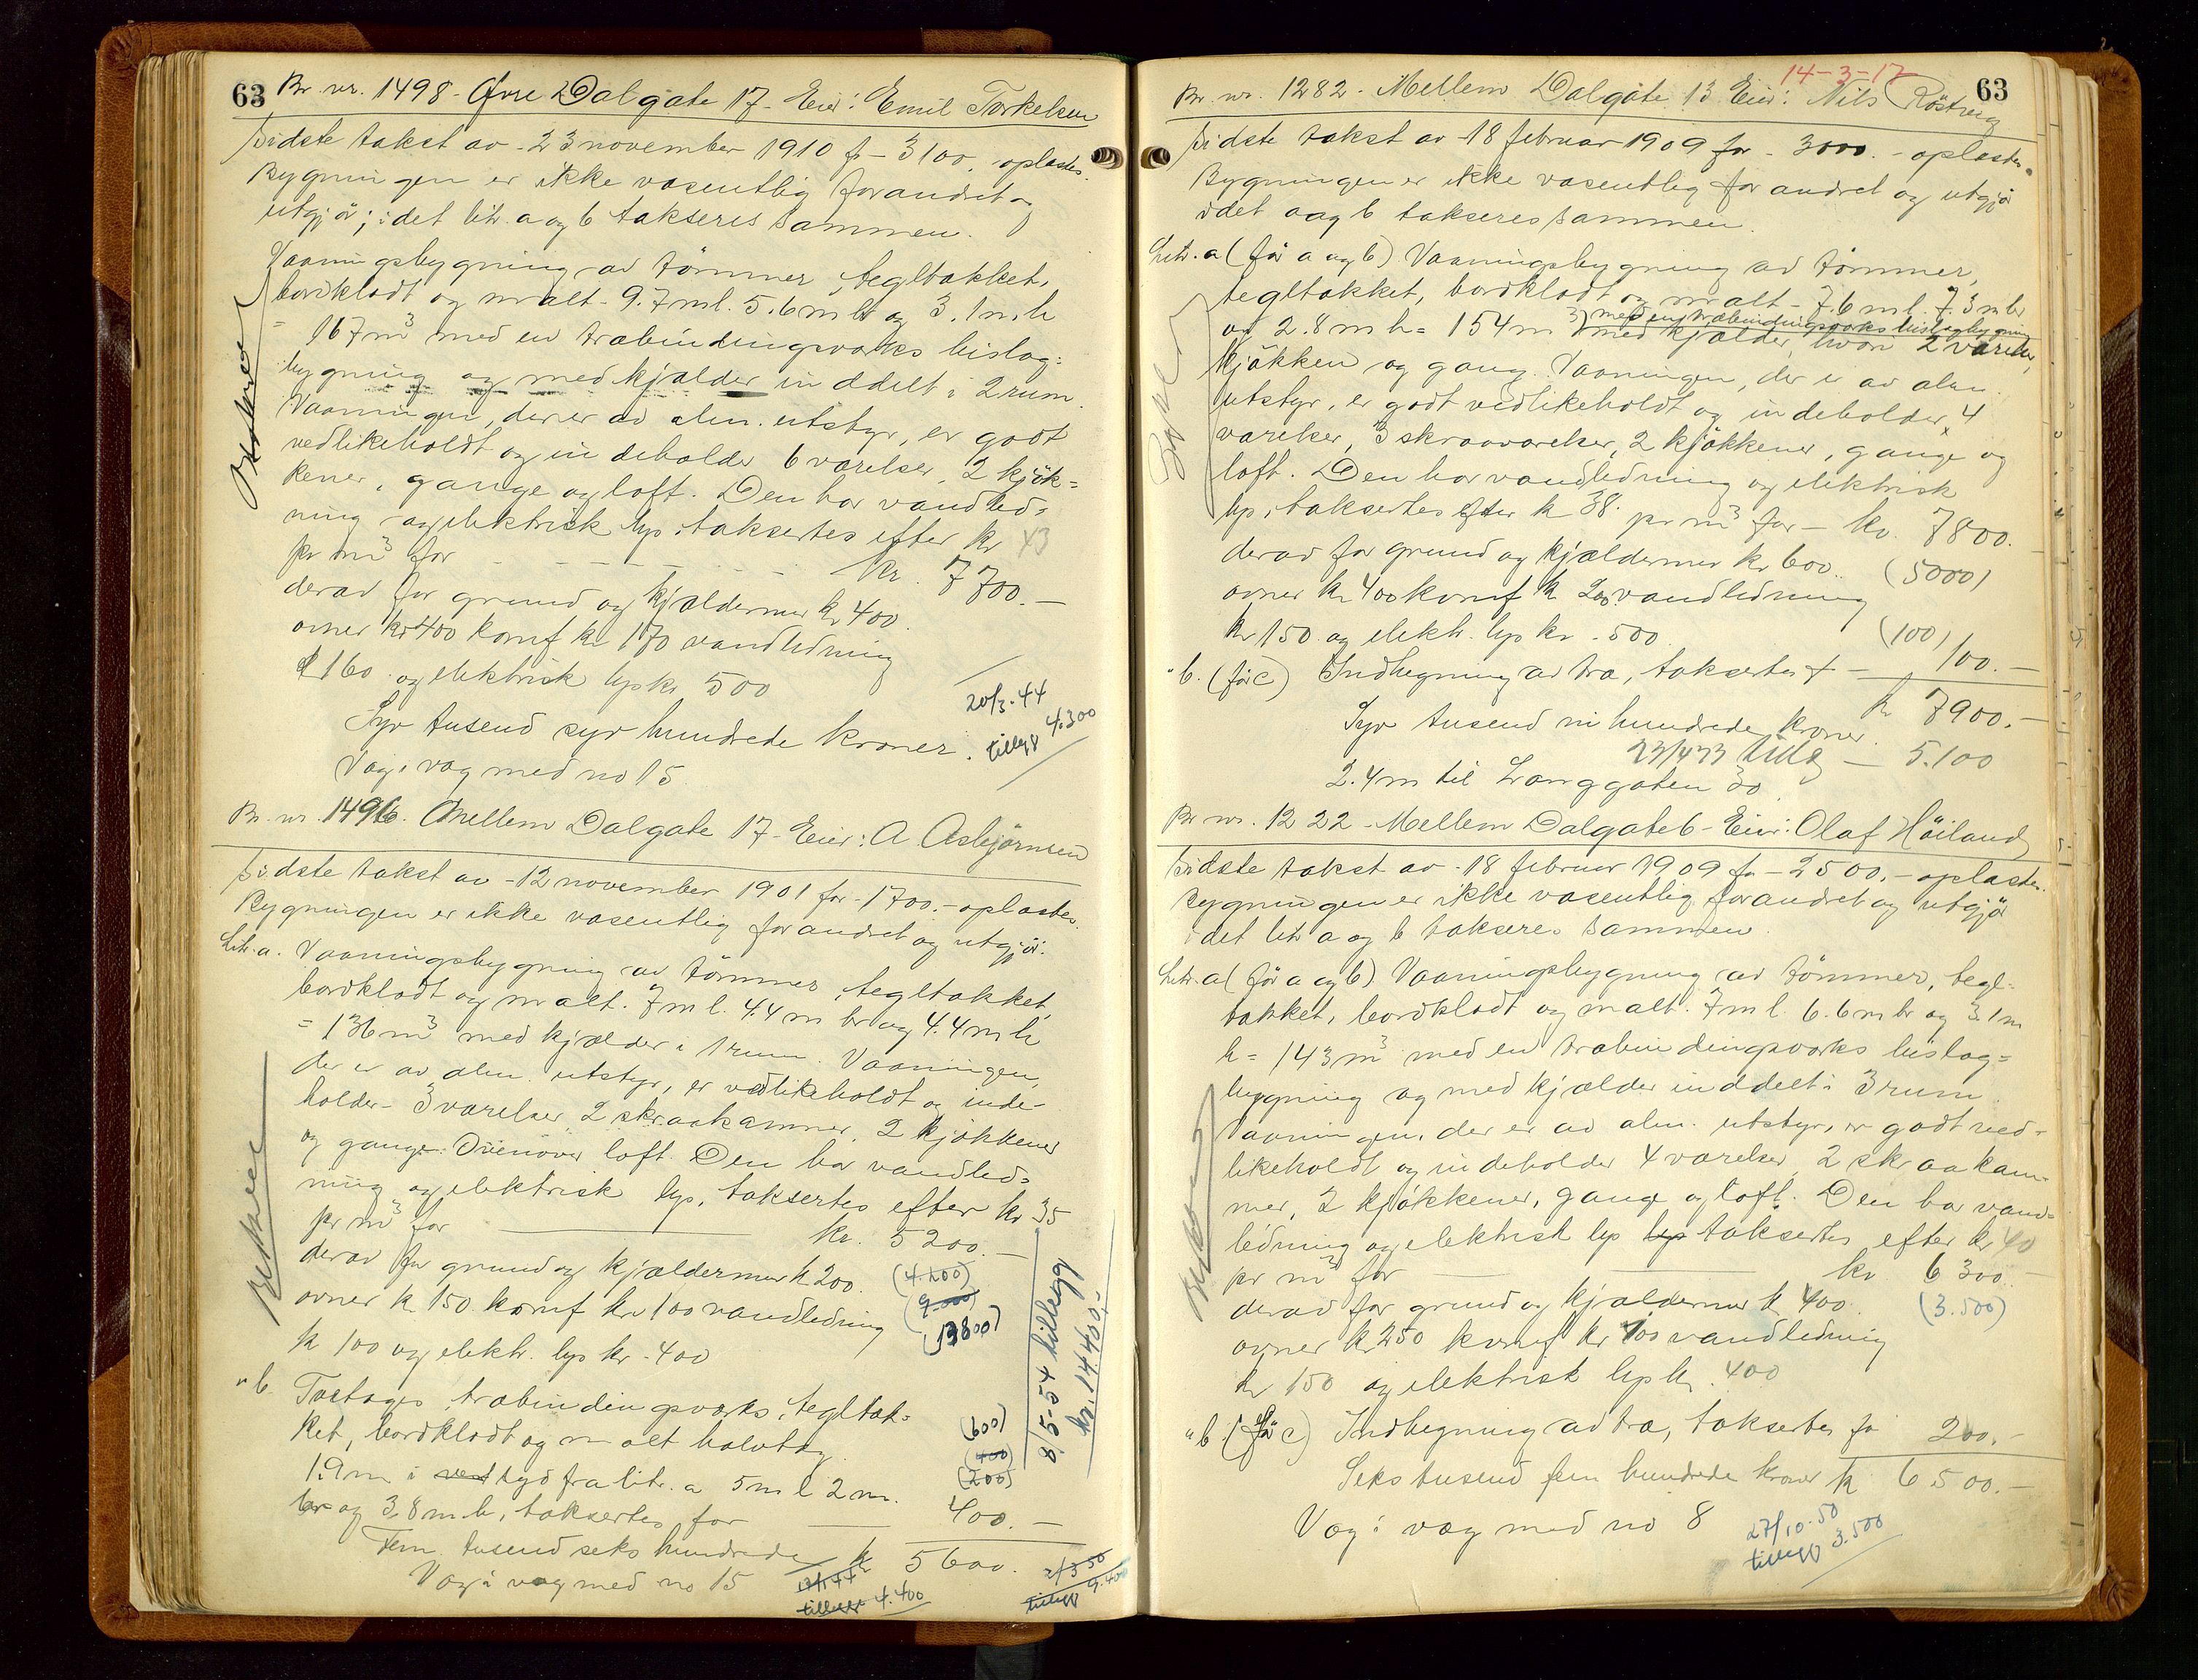 63
Br. nr. 1498 - Øvre Dalgate 17 - Eier: Emil Torkelsen
Sidste takst av - 23 november 1910 fr - 3100, oplæstes.
Bygningen er ikke væsentlig forandret og
utgjør; idet litr. a og b takseres sammen.
Vaaningsbygning av tømmer, tegltækket,
bordklædt og malt - 9.7 m l. 5.6 m br og 3.1 m h
= 167 m³ med en træbindingsværks bislag-
bygning og med kjælder inddelt i 2 rum.
Vaaningen, der er av alm. utstyr, er godt
vedlikeholdt og indeholder 6 værelser, 2 kjøk=
kener, gange og loft. Den har vandled=
ning og elektrisk lys, taksertes efter kr 43
pr m³ for - - - - - - kr. 7700.-
derav for grund og kjældermur kr 400.
ovner kr 400 komf kr 170 vandledning
160 og elektrisk lys kr 500
Syv tusend syv hundrede kroner.
20/3-44
tillegg 4.300
Væg i væg med no 15
Br. nr. 1496. Mellem Dalgate 17 - Eier: A Asbjørnsen
Sidste takst av - 12 november 1901 for - 1700.- oplæstes.
Bygningen er ikke væsentlig forandret og utgjør:
Litr. a. Vaaningsbygning av tømmer, tegltækket,
bordklædt og malt. 7 m l. 4.4 m br og 4.4 m h
= 136 m³ med kjælder i 1 rum. Vaaningen,
der er av alm. utstyr, er vedlikeholdt og inde-
holder - 3 værelser, 2 skraakamre, 2 kjøkkener
og gange. Ovenover loft. Den har vandled=
ning og elektrisk lys, taksertes efter kr 35
pr m³ for kr. 5200.-
derav for grund og kjældermur kr 200. (4.200)
ovner kr 150 komf kr 100 vandledning (9.000)
kr 100 og elektr. lys kr - 400 (13800)
8/5-54 tillegg
kr. 14.400,-
" b. Toetages træbindingsværks, tegltæk=
ket, bordklædt og malt halvtag (600)
1.9 m i vest syd fra litr. a 5 m l 2 m. (400) (200)
br og 3.8 m h, taksertes for 400.-
Fem tusend seks hundrede kr 5600.
Væg i væg med no 15
tillegg 4.400
tillegg 9.400
63
14-3-17
Br. nr. 1282 - Mellem Dalgate 13 Eier: Nils
Sidste takst av - 18 februar 1909 for - 3000.- oplæstes.
Bygningen er ikke væsentlig forandret og utgjør
idet a og b takseres sammen.
Litr. a (før a og b) Vaaningsbygning av tømmer,
tegltækket, bordklædt og malt - 7.6 m l. 7.3 m br
med en træbindingsværks bislagbygning
og 2.8 m h = 154 m³ med kjælder, hvori 2 værelser,
kjøkken og gang. Vaaningen, der er av alm
utstyr, er godt vedlikeholdt og indeholder 4
værelser, 3 skraaværelser, 2 kjøkkener, gange og
loft. Den har vandledning og elektrisk
lys, taksertes efter kr 38. pr m³ for - kr. 7800.
derav for grund og kjældermur kr 600. (5000)
ovner kr 400 komf kr 200 vandledning
kr 150 og elektr. lys kr - 500. (100)
" b. (før c) Indhegning av træ, taksertes f - 100.-
kr 7900.-
Syv tusend ni hundrede kroner.
5.100
2.4 m til Langgaten 30
Br nr. 1222 - Mellem Dalgate 6 - Eier: Olaf Høiland
Sidste takst av - 18 februar 1909 for - 2500.- oplæstes.
Bygningen er ikke væsentlig forandret og utgjør
idet litr a og b takseres sammen.
Litr. a (før a og b) Vaaningsbygning av tømmer, tegl-
tækket, bordklædt og malt. 7 m l. 6.6 m br og 3.1 m
h = 143 m³ med en træbindingsværks bislag=
bygning og med kjælder inddelt i 3 rum.
Vaaningen, der er av alm. utstyr, er godt ved-
likeholdt og indeholder 4 værelser, 2 skraakam-
mer, 2 kjøkkener, gange og loft. Den har vand=
ledning og elektrisk lys lys taksertes efter kr 40
pr m³ for kr 6300.-
derav for grund og kjældermur kr 400. (3.500)
ovner kr 250 komf kr 100 vandledning
kr 150 og elektrisk lys kr. 400
" b. (før c) Indhegning av træ, taksertes for 200.-
Seks tusend fem hundrede kroner kr 6500.-
Væg i væg med no 8
27/10-50
tillegg 3.500